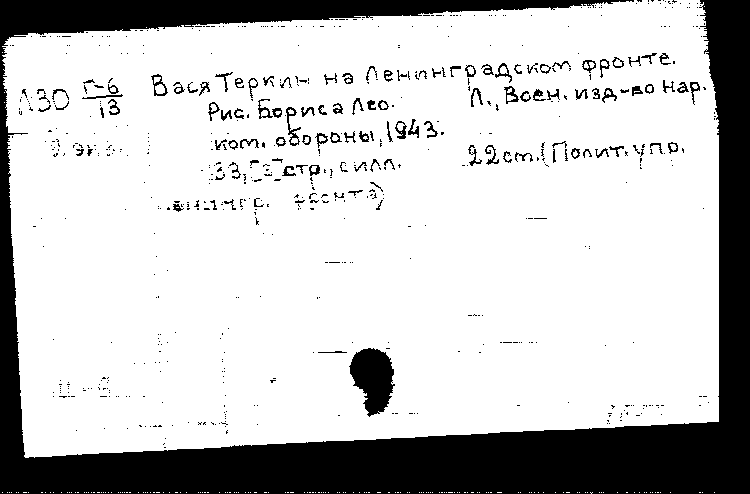 Л30 Г-6/13 Вася Теркин на Ленинградском фронте.
Рис. Бориса Лео. Л., Воен. изд-во нар.
ком. обороны, 1943.
33, [3] стр., с илл. 22 см. (Полит. упр.
Ленингр. фронта)